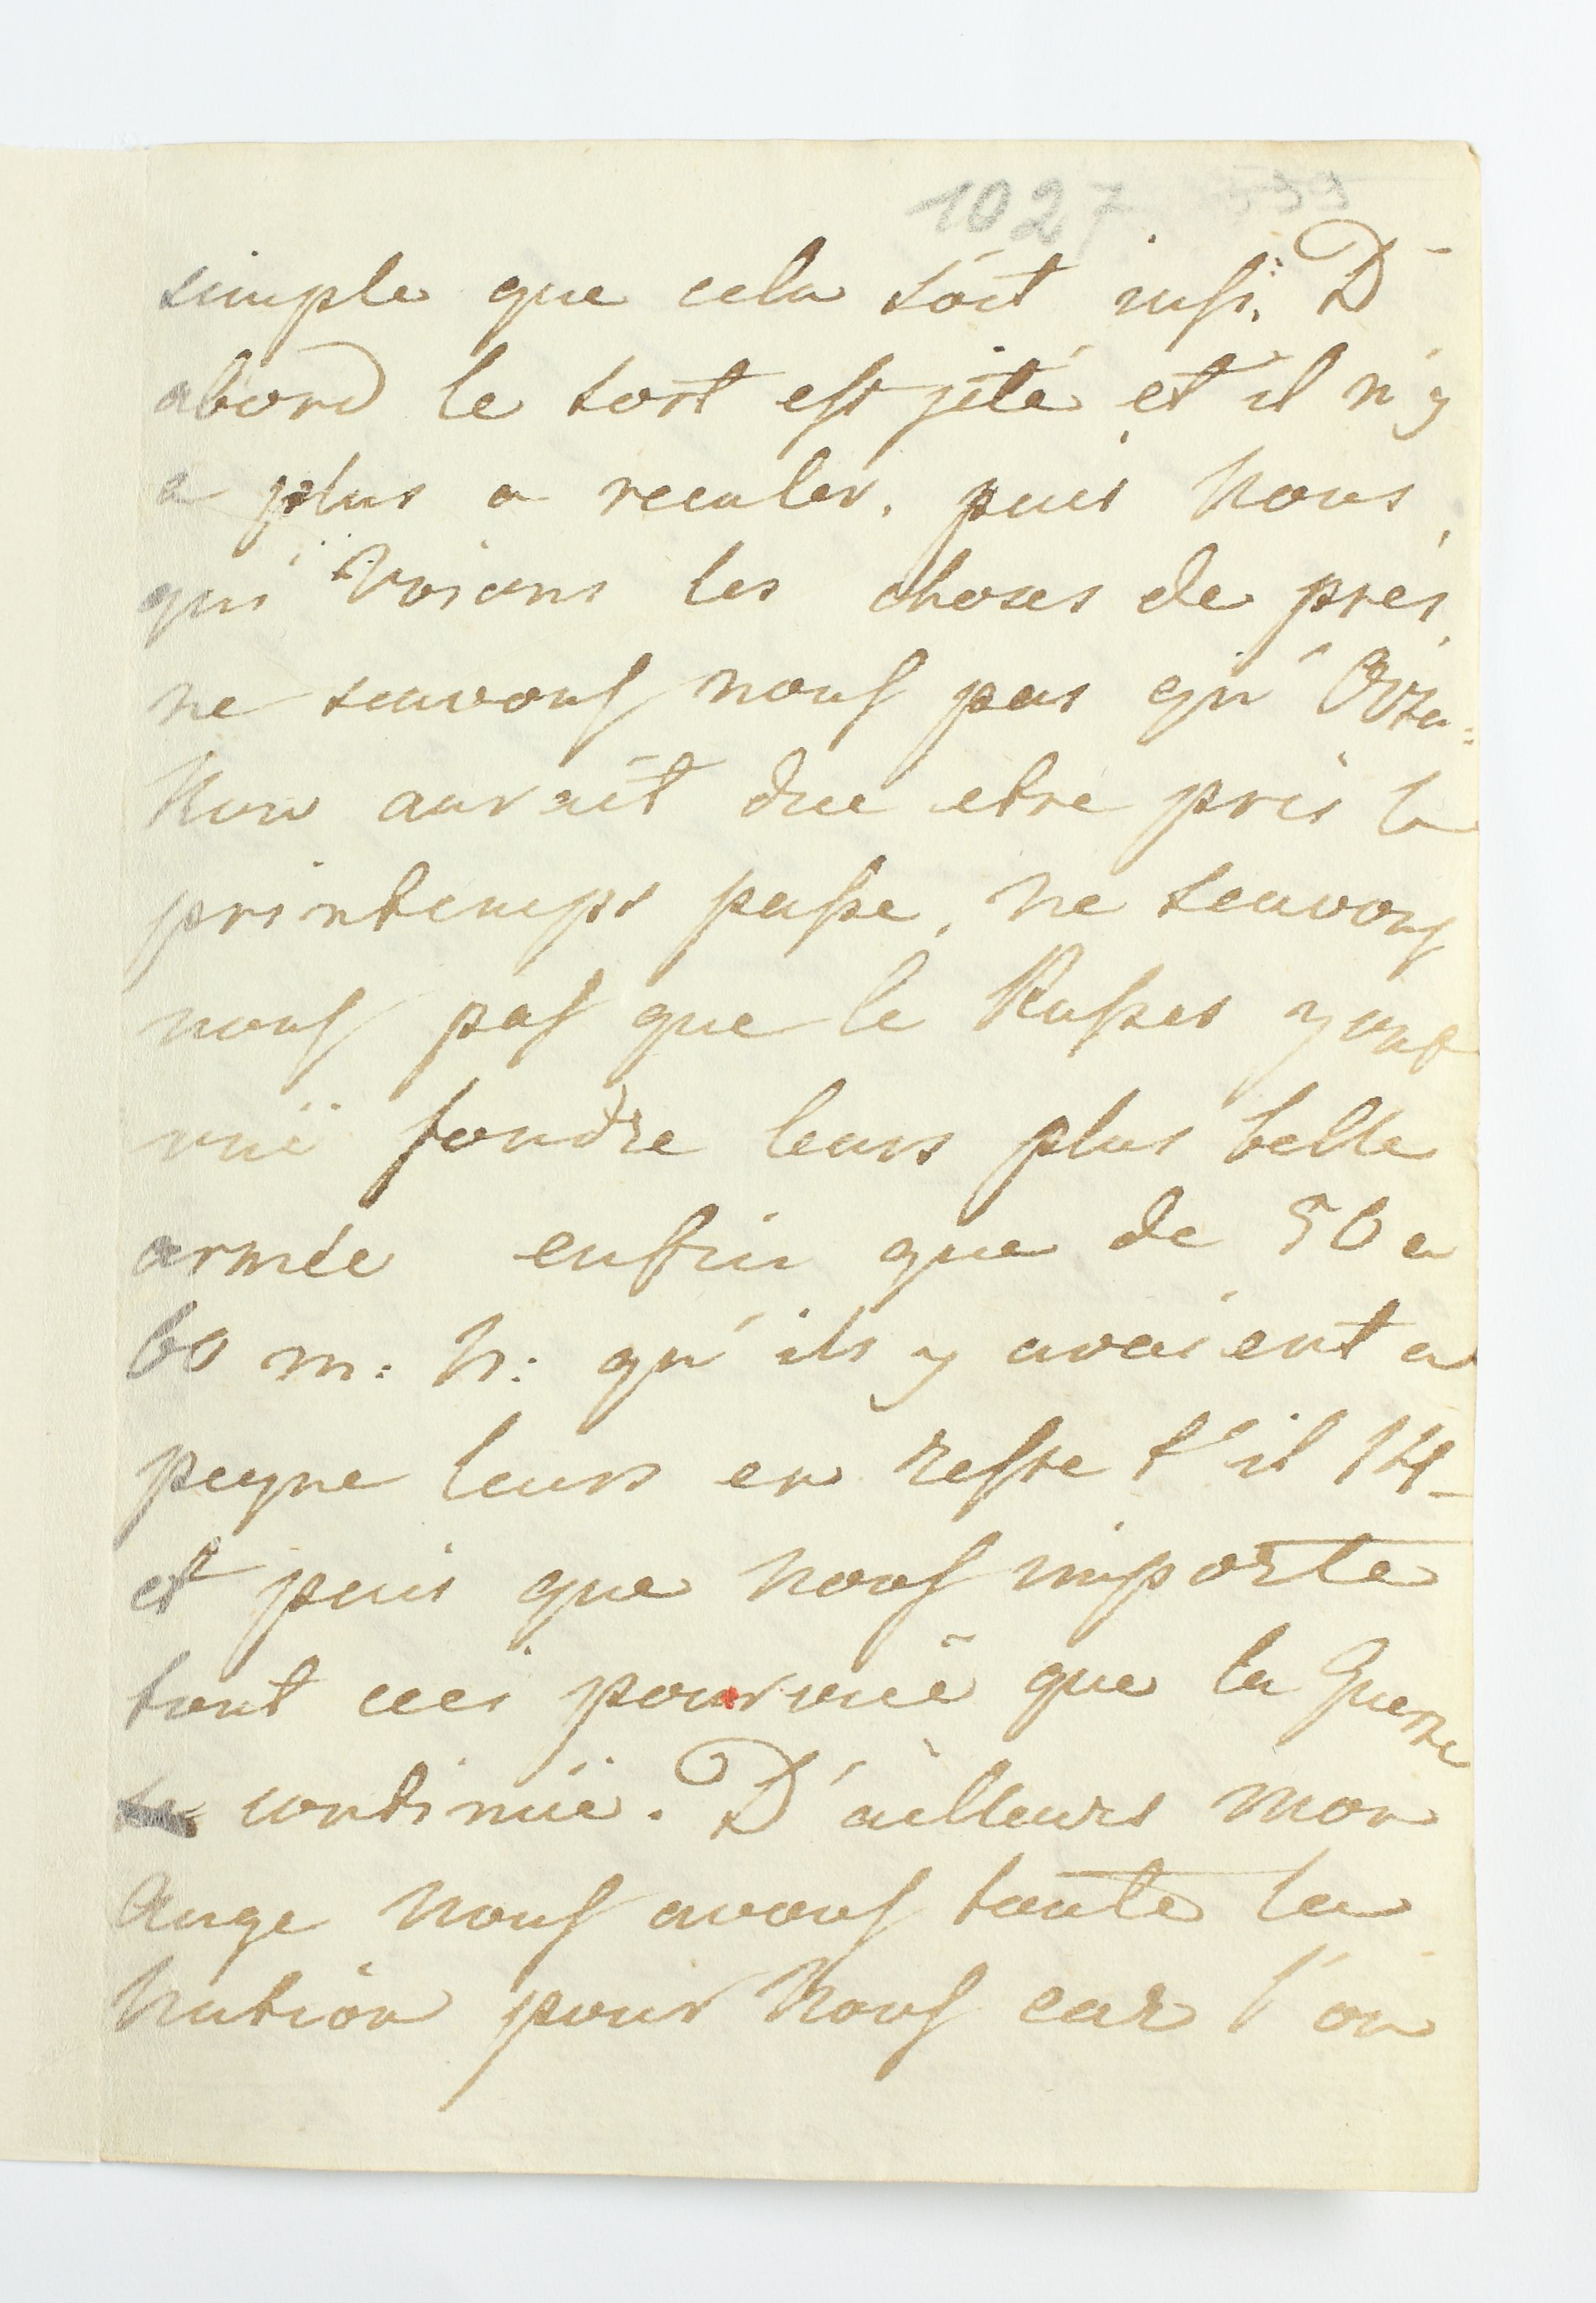 1027
simple que cela soit insi. D'
abord le sort est jeté et il n'y
a plus a reculer, puis Nous
qui Voions les choses de près,
ne scavons nous pas qu' Otza=
kow aurait due etre pris le
printemps passe, ne scavons
nous pas que le Russes y ont
vuë fondre leurs plus belle
armée enfin que de 50 a
60 m: h: qu'ils y avaient a
peyne leurs en reste t'il 14_
et puis que nous importe
tout ceci pourvuë que la Guerre
continuë. D'ailleurs mon
Ange Nous avons toute la
Nation pour Nous car l'on